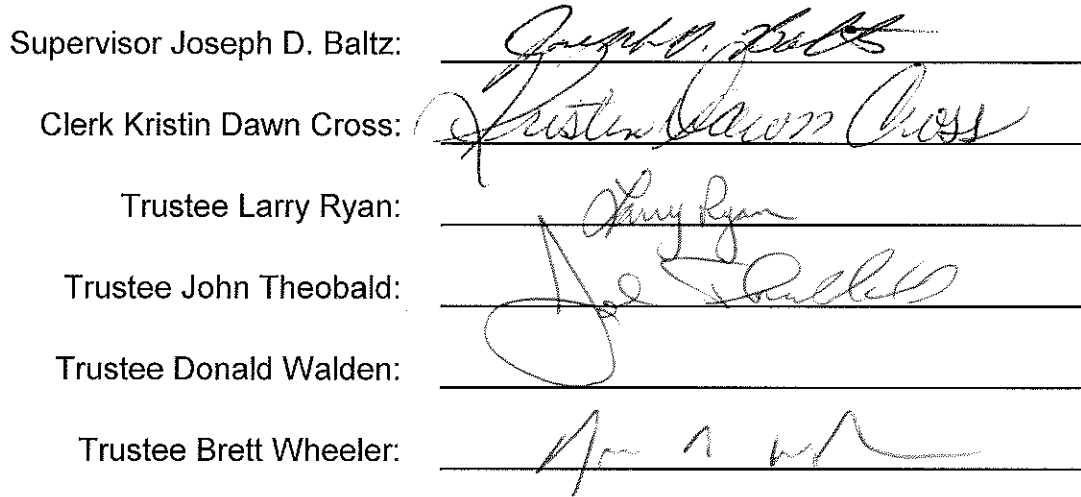 Supervisor Joseph D. Baltz: Joseph D. Baltz
Clerk Kristin Dawn Cross: Kristin Dawn Cross
Trustee Larry Ryan: Larry Ryan
Trustee John Theobald:
Trustee Donald Walden:
Trustee Brett Wheeler: